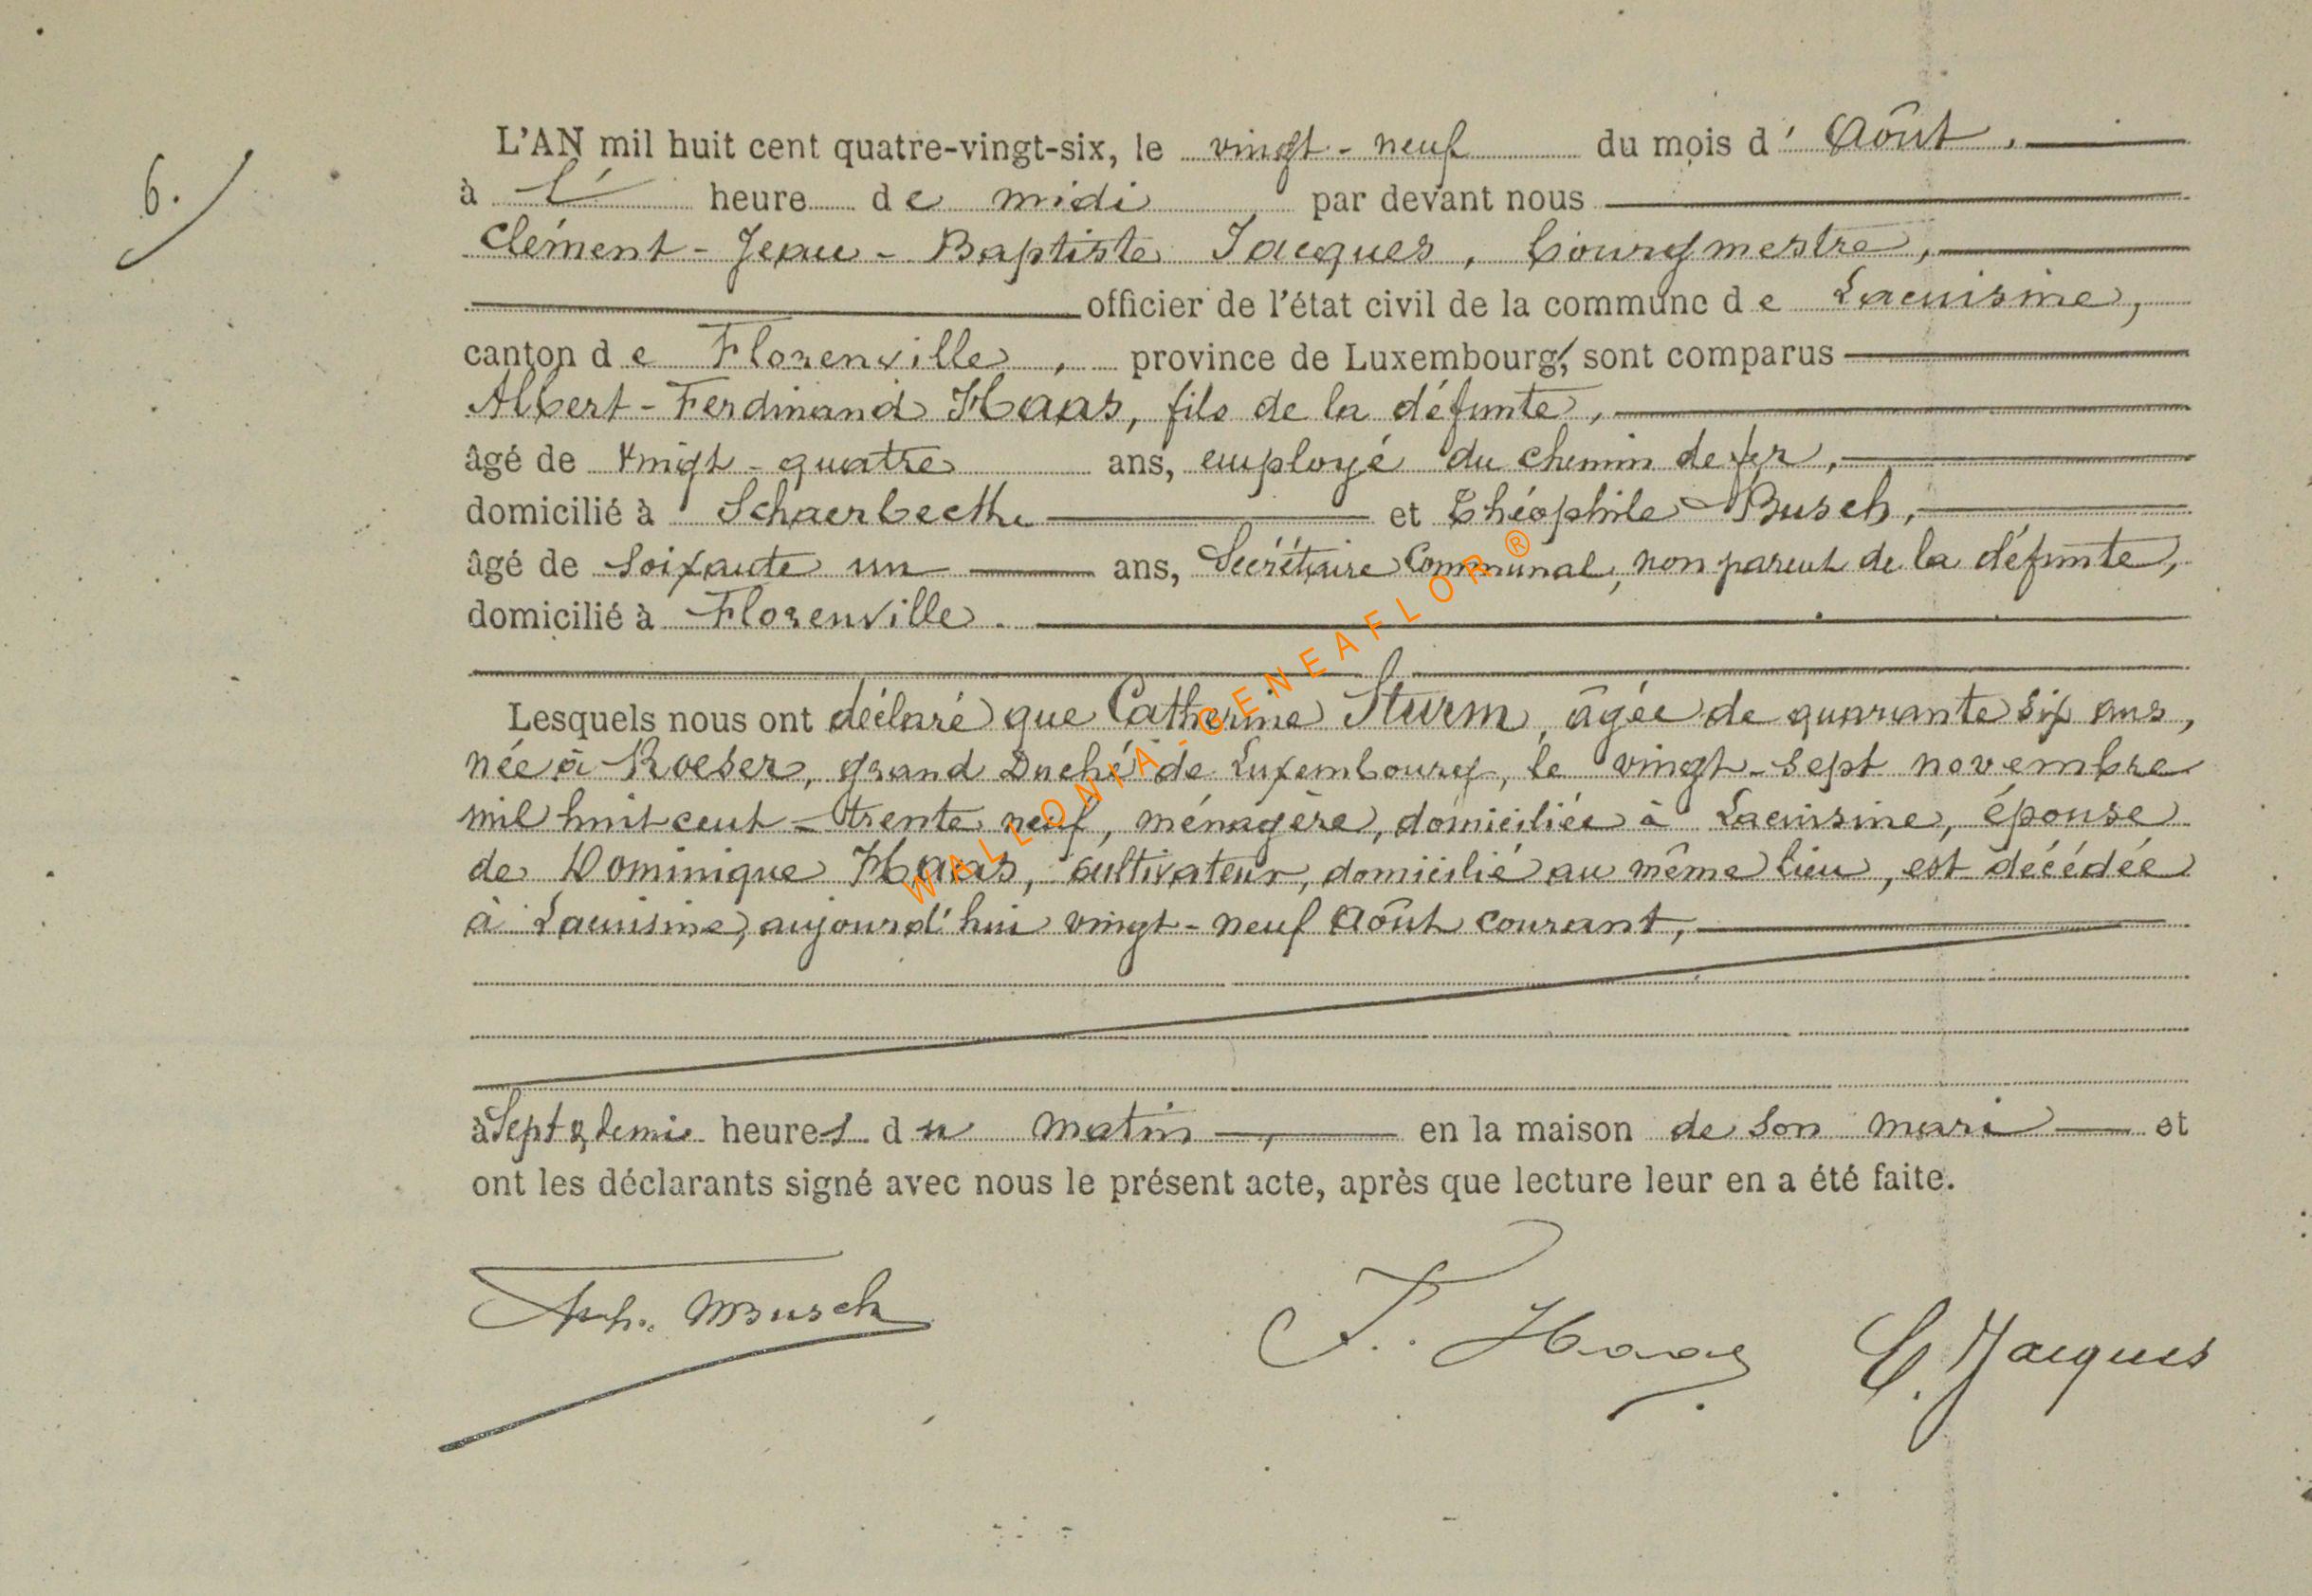 6.
L'AN mil huit cent quatre-vingt-six, le vingt-neuf du mois d'Aôut,
à l' heure de midi par devant nous
Clément-Jean-Baptiste Jacques, bourgmestre,
officier de l'état civil de la commune de Lacuisine,
canton de Florenville, province de Luxembourg, sont comparus
Albert-Ferdinand Haas, fils de la défunte,
âgé de vingt-quatre ans, employé du chemin de fer,
domicilié à Schaerbeck et Théophile Busch,
âgé de soixante un ans, Secrétaire Communal, non parent de la défunte,
domicilié à Florenville.
Lesquels nous ont déclaré que Catherine Sturm, âgée de quarante six ans,
née à Roeser, grand Duché de Luxembourg, le vingt-sept novembre
mil huit cent-trente neuf, ménagère, domiciliée à Lacuisine, épouse
de Dominique Haas, cultivateur, domicilié au même lieu, est décédée
à Lacuisine, aujourd'hui vingt-neuf Aôut courant,
à Sept & demie heures du matin, en la maison de son mari et
ont les déclarants signé avec nous le présent acte, après que lecture leur en a été faite.
Busch F. Haas C. Jacques
WALLONIA-GENEAFLOR ®